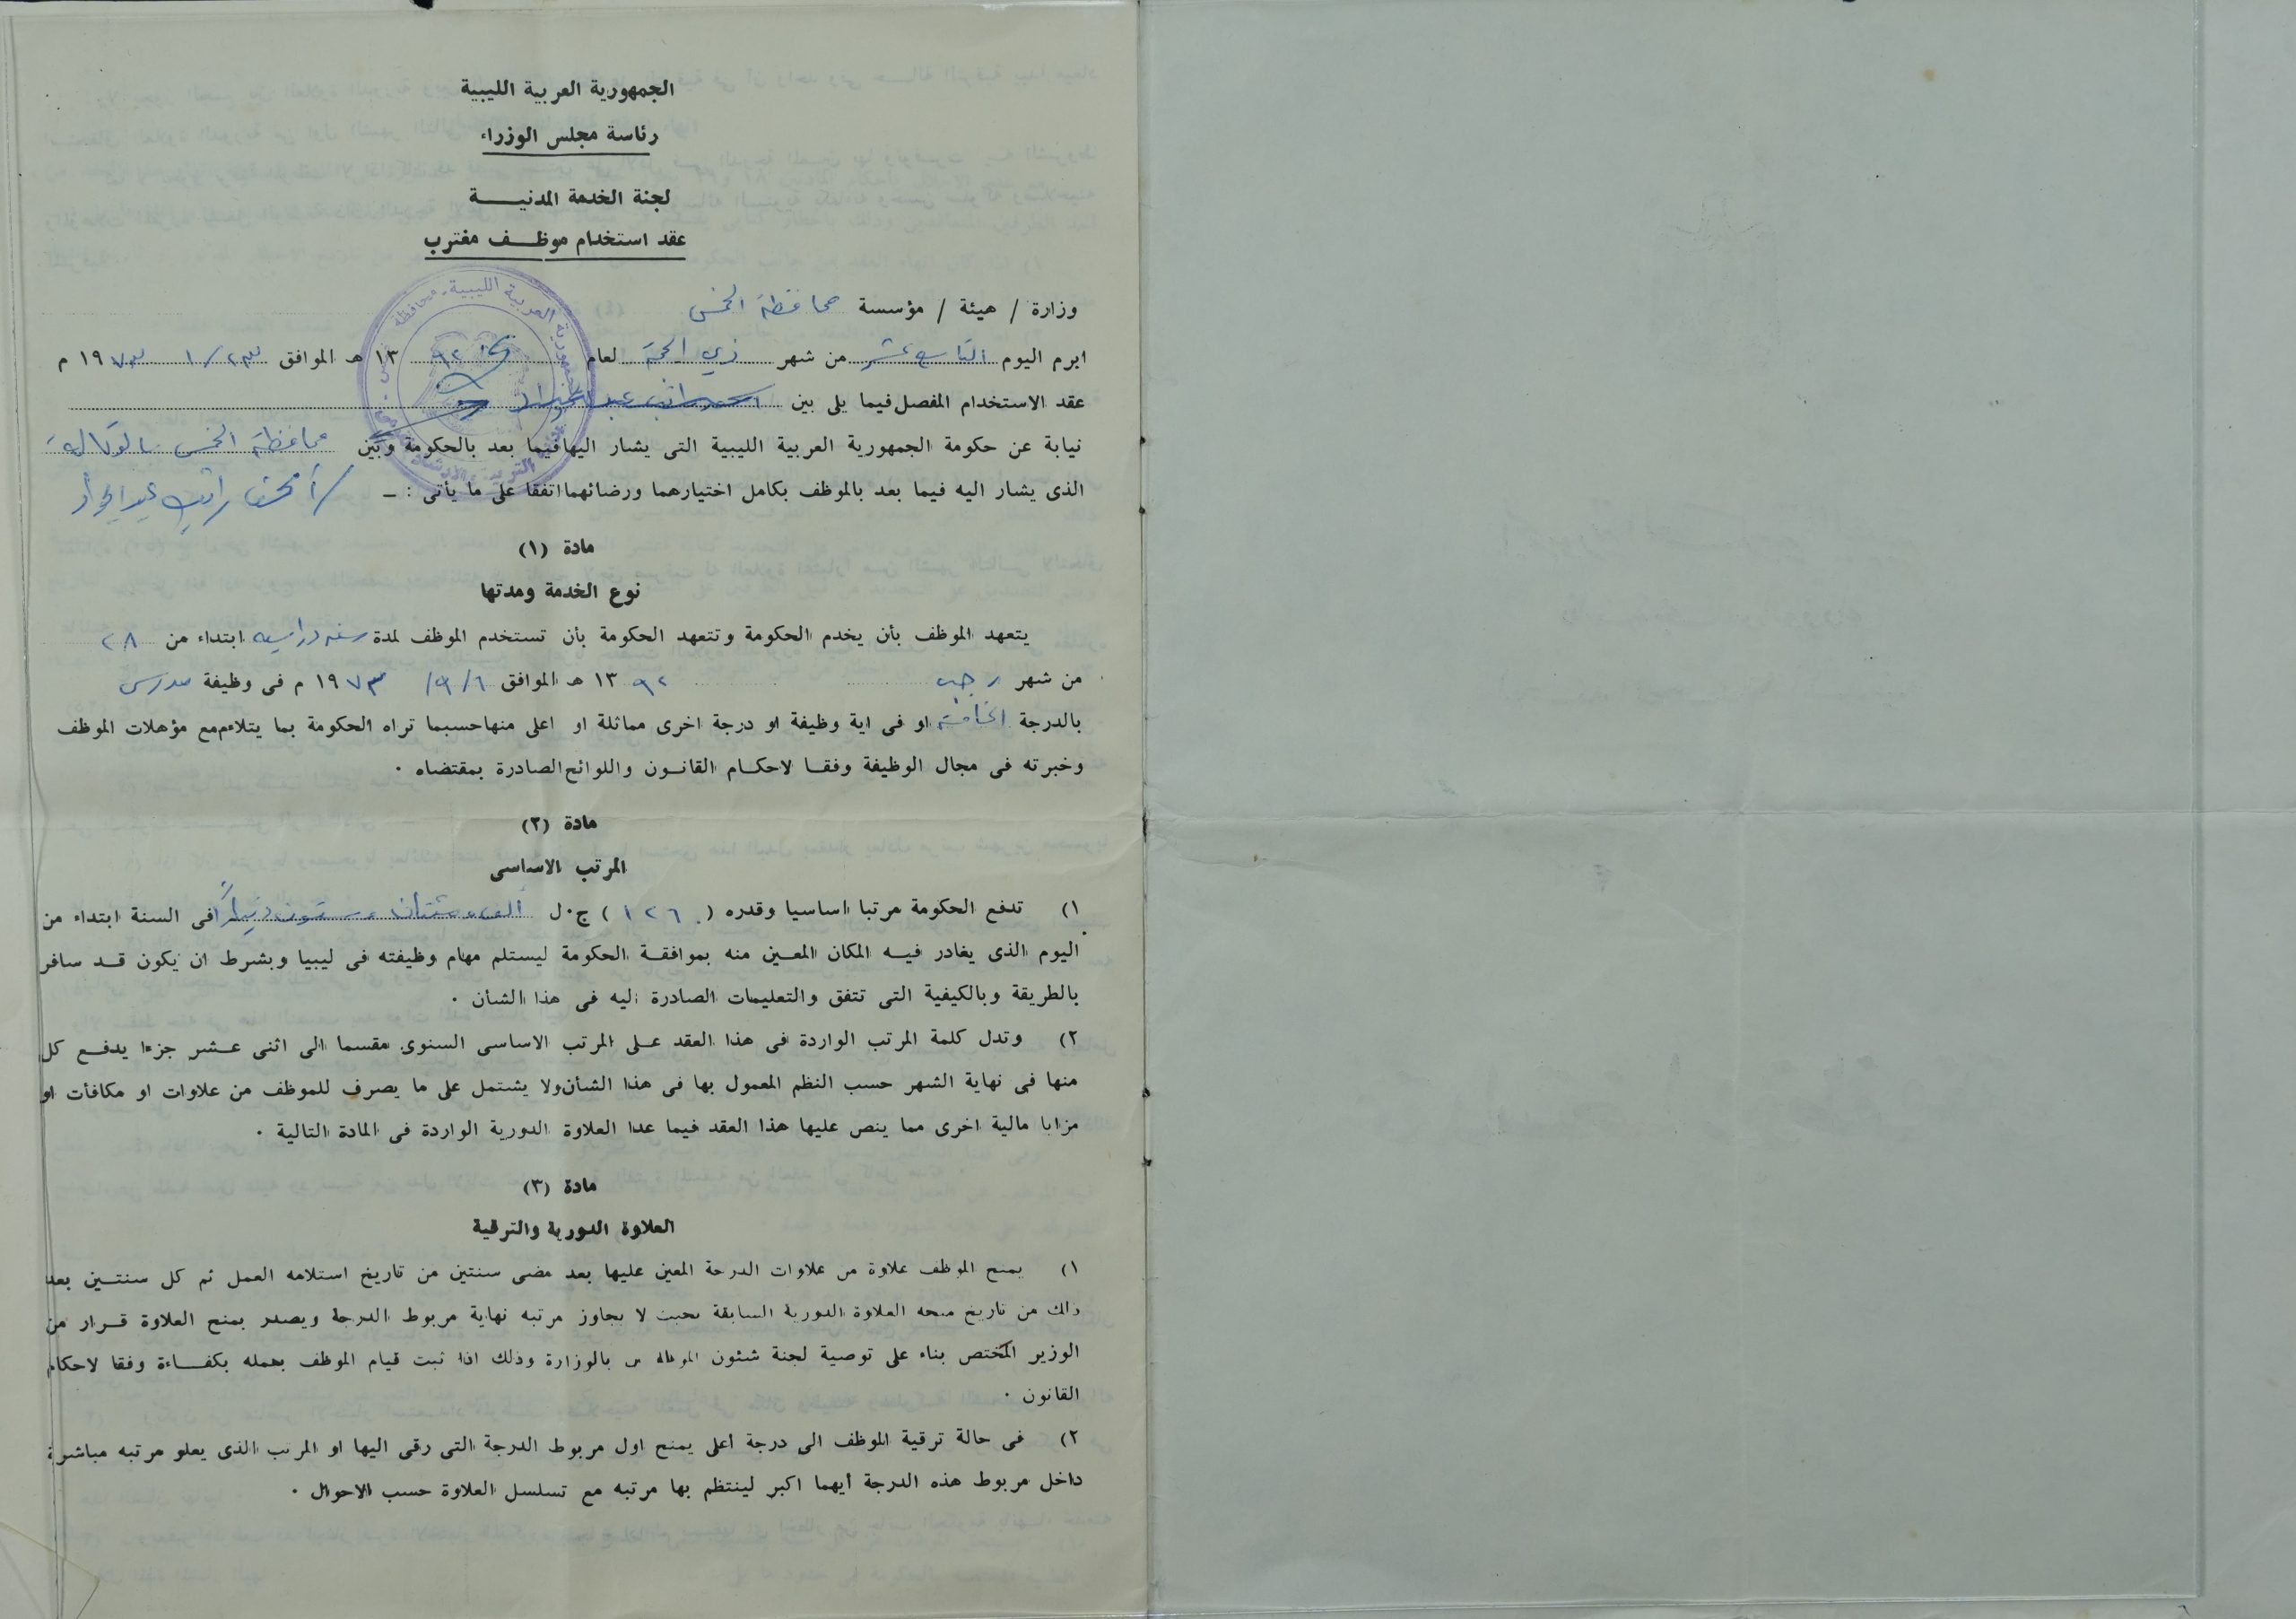 الجمهورية العربية الليبية
رئاسة مجلس الوزراء
لجنة الخدمة المدنيـــــة
عقد استخدام موظـــف مغترب
وزارة / هيئة / مؤسسة محافظة الخمس
ابرم اليوم التاسع عشر من شهر ذي الحجة لعام ١٣٩٢ هـ الموافق ٢٣/١ ١٩٧٣ م
عقد الاستخدام المفصل فيما يلى بين
نيابة عن حكومة الجمهورية العربية الليبية التى يشار اليها فيما بعد بالحكومة وبين محافظة الخمس بالوكالة
الذى يشار اليه فيما بعد بالموظف بكامل اختيارهما ورضائهما اتفقا على ما يأتى : ــ راتب عبد الجواد
مادة (١)
نوع الخدمة ومدتها
يتعهد الموظف بأن يخدم الحكومة وتتعهد الحكومة بأن تستخدم الموظف لمدة سنه دراسيه ابتداء من ٢٨
من شهر رجب ١٣٩٢ هـ الموافق ٦/٩/ ١٩٧٣ م فى وظيفة مدرس
بالدرجة الخامسة او فى اية وظيفة او درجة اخرى مماثلة او اعلى منها حسبما تراه الحكومة بما يتلاءم مع مؤهلات الموظف
وخبرته فى مجال الوظيفة وفقـا لاحكـام القانـون واللوائح الصادرة بمقتضاه ٠
مادة (٢)
المرتب الاساسى
١) تدفع الحكومة مرتبا اساسيا وقدره ( ١٢٦٠ ) ج٠ل الف ومئتان وستون دنيارًا فى السنة ابتداء من
اليوم الذى يغادر فيـه المكان المعـين منه بموافقـة الحكومة ليستلم مهام وظيفته فى ليبيا وبشرط ان يكون قـد سافر
بالطريقة وبالكيفية التى تتفق والتعليمات الصادرة اليه فى هذا الشأن ٠
٢) وتدل كلمة المرتب الواردة فى هذا العقد عـلى المرتب الاساسى السنوى مقسما الى اثنى عـشر جزءا يدفـع كل
منها فى نهاية الشهر حسب النظم المعمول بها فى هذا الشأن ولا يشتمل على ما يصرف للموظف من علاوات او مكافأت او
مزايا مالية اخرى مما ينص عليها هذا العقد فيما عدا العلاوة الدورية الواردة فى المادة التالية ٠
مادة (٣)
العلاوة الدورية والترقية
١) يمنح الموظف علاوة من علاوات الدرجة المعين عليها بعد مضى سنتين من تاريخ استلامه العمل ثم كل سنتـين بعد
ذلك من تاريخ منحه العلاوة الدورية السابقة بحيث لا يجاوز مرتبه نهاية مربوط الدرجة ويصدر بمنح العلاوة قـرار من
الوزير المختص بناء على توصية لجنة شئون الموظفين بالوزارة وذلك اذا ثبت قيام الموظف بعمله بكفـاءة وفقا لاحكام
القانون ٠
٢) فى حالة ترقية الموظف الى درجة اعلى يمنح اول مربوط الدرجة التى رقى اليها او المرتب الذى يعلو مرتبه مباشرة
داخل مربوط هذه الدرجة أيهما اكبر لينتظم بها مرتبه مع تسلسل العلاوة حسب الاحوال ٠